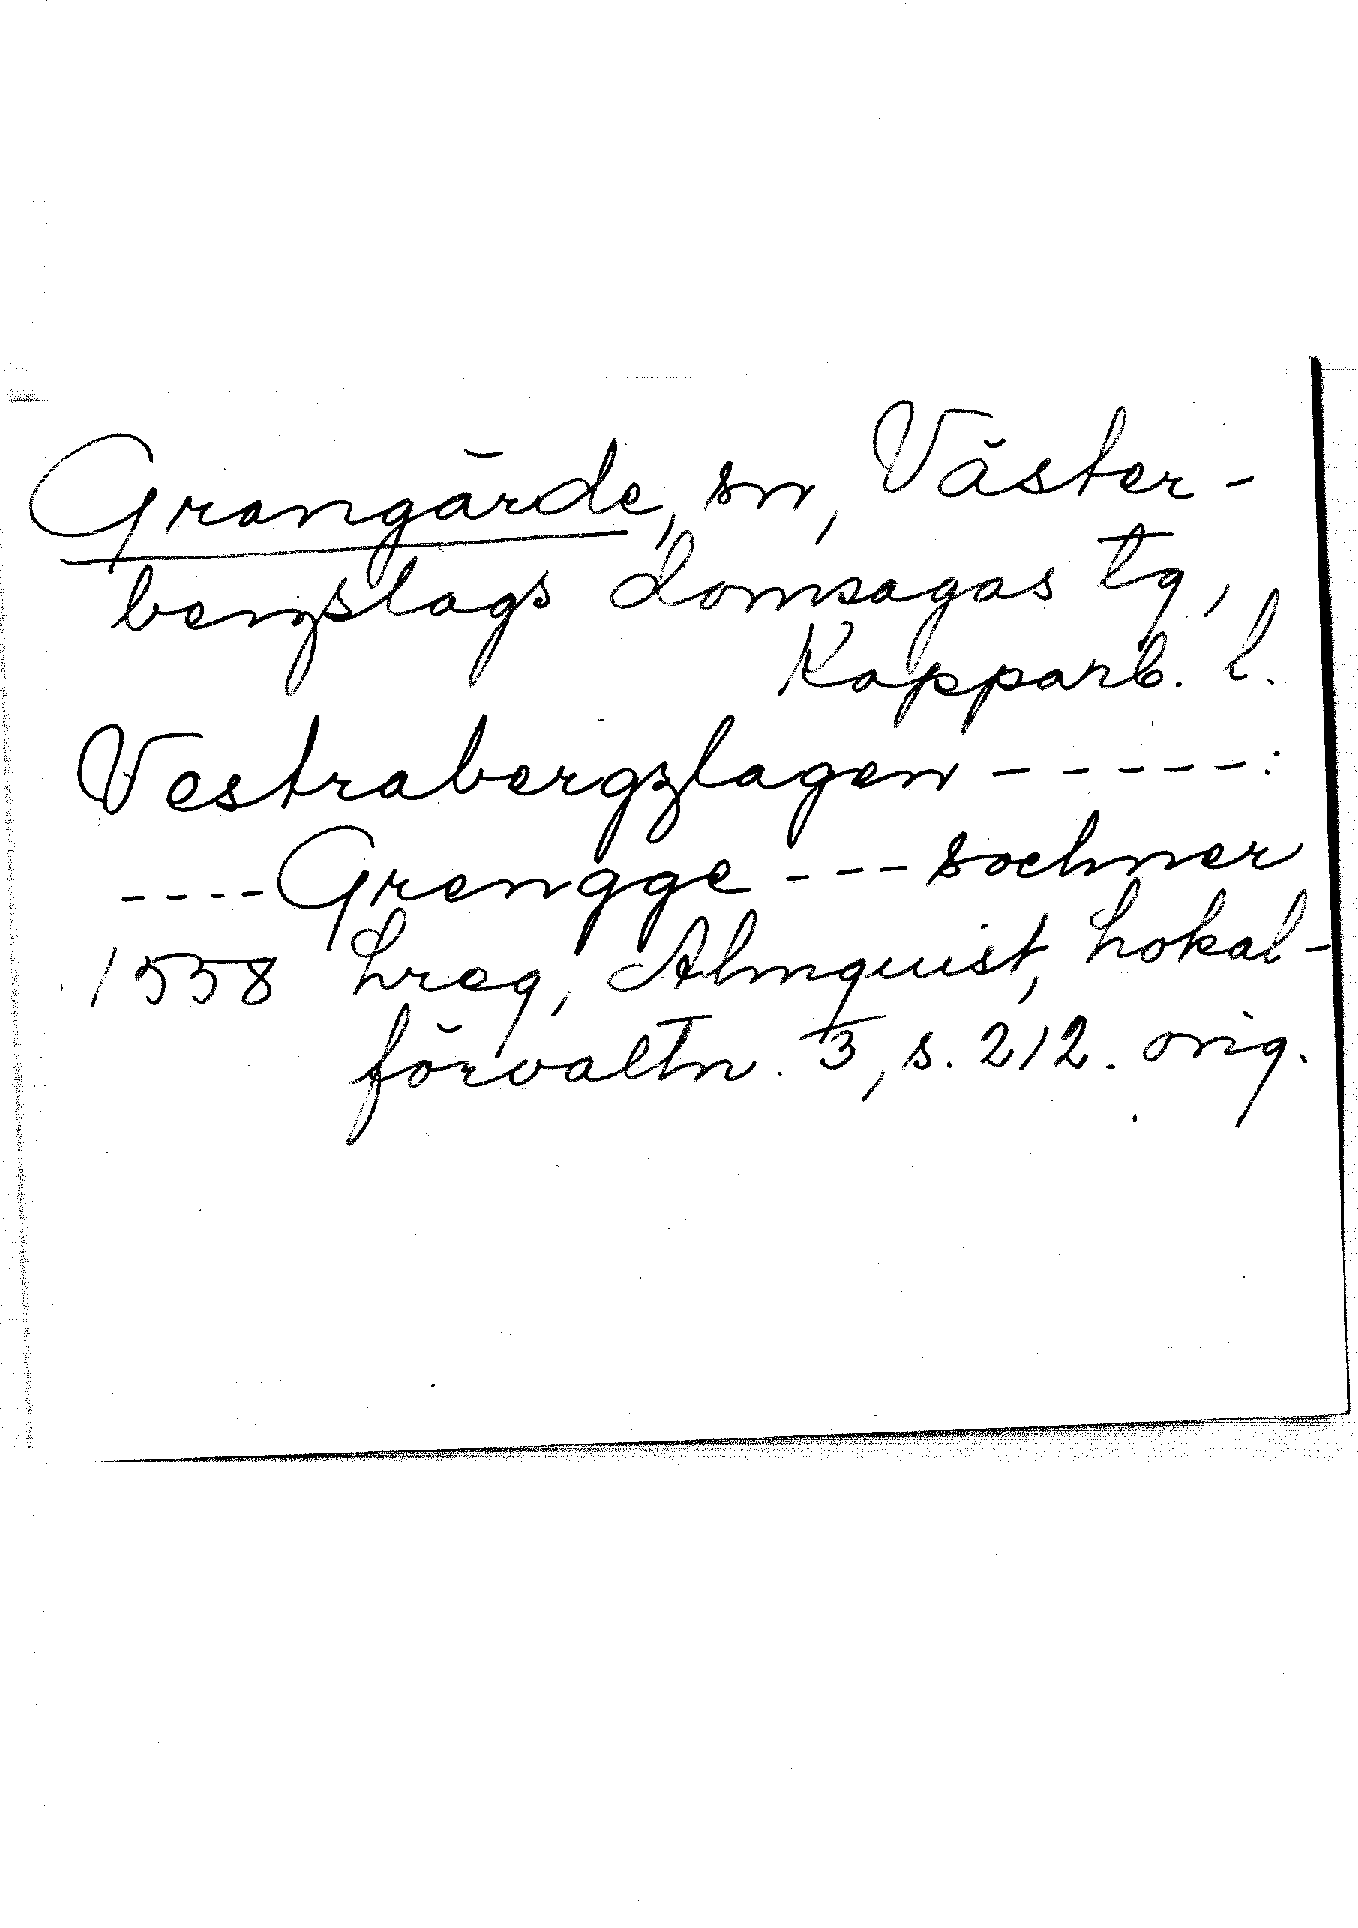 Grangärde, sn, Väster-
bergslags domsagas tg,
Kopparb. l.
Vestrabergzlagen - - - - - :
- - - - Grengge - - - sochner
1558 Lreg, Almquist, Lokal-
förvaltn. 3, s. 212. orig.